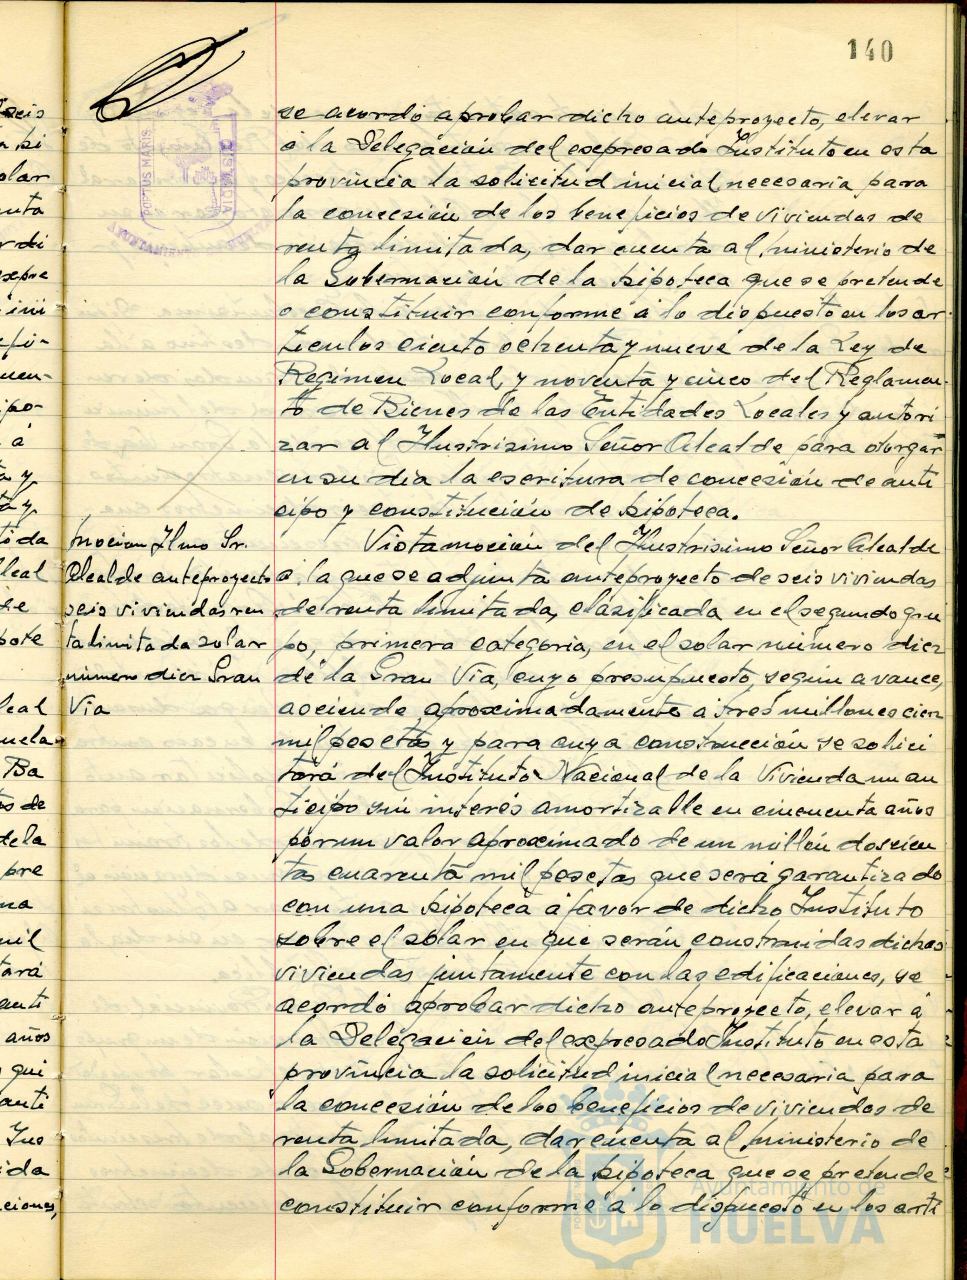 140
se acordó aprobar dicho anteproyecto, elevar
a la Delegación del expresado Instituto en esta
provincia la solicitud inicial necesaria para
la concesión de los beneficios de viviendas de
renta limitada, dar cuenta al Ministerio de
la Gobernación de la hipoteca que se pretende
constituir conforme a lo dispuesto en los ar-
tículos ciento ochenta y nueve de la Ley de
Regimen Local, y noventa y cinco del Reglamen-
to de Bienes de las Entidades Locales y autori
zar al Ilustrisimo Señor Alcalde para otorgar
en su dia la escritura de concesión de anti
cipo y constitución de hipoteca.
Moción Ilmo Sr.
Alcalde anteproyecto
seis viviendas ren
ta limitada solar
número diez Gran
Via
Vista moción del Ilustrisimo Señor Alcalde
a la que se adjunta anteproyecto de seis viviendas
de renta limitada, clasificada en el segundo gru
po, primera categoria, en el solar número diez
de la Gran Via, cuyo presupuesto, según avance,
asciende aproximadamente a tres millones cien
mil pesetas y para cuya construcción se solici
tará del Instituto Nacional de la Vivienda un an
ticipo sin interés amortizable en cincuenta años
por un valor aproximado de un millón doscien
tas cuarenta mil pesetas que será garantizado
con una hipoteca a favor de dicho Instituto
sobre el solar en que serán construidas dichas
viviendas juntamente con las edificaciones, se
acordó aprobar dicho anteproyecto, elevar a
la Delegación del expresado Instituto en esta
provincia la solicitud inicial necesaria para
la concesión de los beneficios de viviendas de
renta limitada, dar cuenta al Ministerio de
la Gobernación de la hipoteca que se pretende
constituir conforme a lo dispuesto en los artí
PORTUS MARIS
Ayuntamiento de
HUELVA